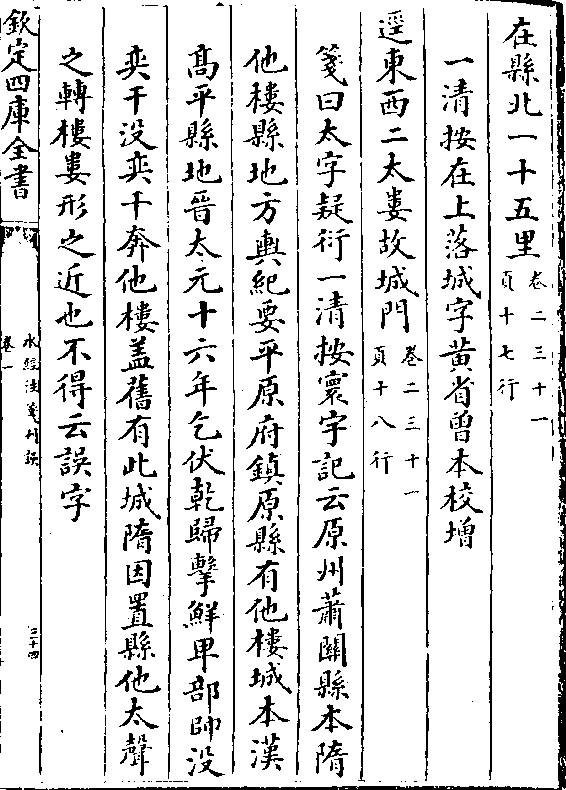 在縣北一十五里卷二三十一頁十七行
一清按在上落城字黄省曾本校增
逕東西二太婁故城門卷二三十一頁十八行
箋曰太字疑衍一清按寰宇記云原州蕭關縣本隋
他樓縣地方輿紀要平原府鎮原縣有他樓城本漢
髙平縣地晉太元十六年乞伏乾歸擊鮮卑部帥没
奕干没奕干奔他樓盖舊有此城隋因置縣他太聲
之轉樓婁形之近也不得云誤字
欽定四庫全書
水經注箋刊誤
卷一
三十四